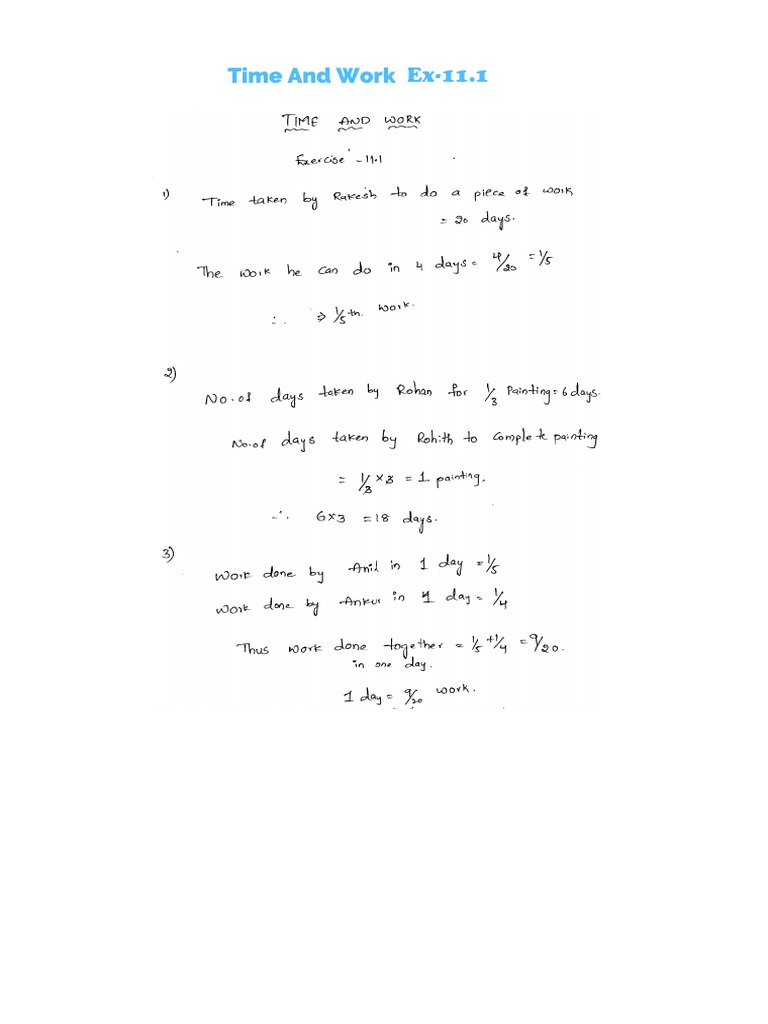 Time And Work Ex-11.1
TIME AND WORK
Exercise - 11.1
1) Time taken by Rakesh to do a piece of work
= 20 days.
The work he can do in 4 days = 4/20 = 1/5
∴ ⇒ 1/5 th work.
2) No. of days taken by Rohan for 1/3 Painting = 6 days.
No. of days taken by Rohith to complete painting
= 1/3 × 3 = 1 painting.
∴ 6×3 = 18 days.
3) Work done by Anil in 1 day = 1/5
Work done by Ankur in 1 day = 1/4
Thus work done together = 1/5 + 1/4 = 9/20.
in one day.
1 day = 9/20 work.